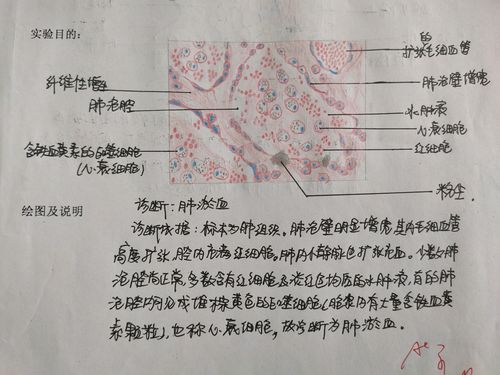 实验目的:
扩张毛细血管的
纤维性增生
肺泡壁增宽
肺泡腔
水肿液
心衰细胞
含铁血黄素的巨噬细胞
(心衰细胞)
红细胞
粉尘
绘图及说明
诊断:肺淤血
诊断依据:标本为肺组织。肺泡壁明显增宽,其内毛细血管
高度扩张,腔内充满红细胞。肺内小静脉也扩张充血。少数肺
泡腔尚正常,多数含有红细胞及淡红色均质的水肿液,有的肺
泡腔内可见成堆棕黄色的巨噬细胞(胞浆内有大量含铁血黄
素颗粒),也称心衰细胞,故诊断为肺淤血。